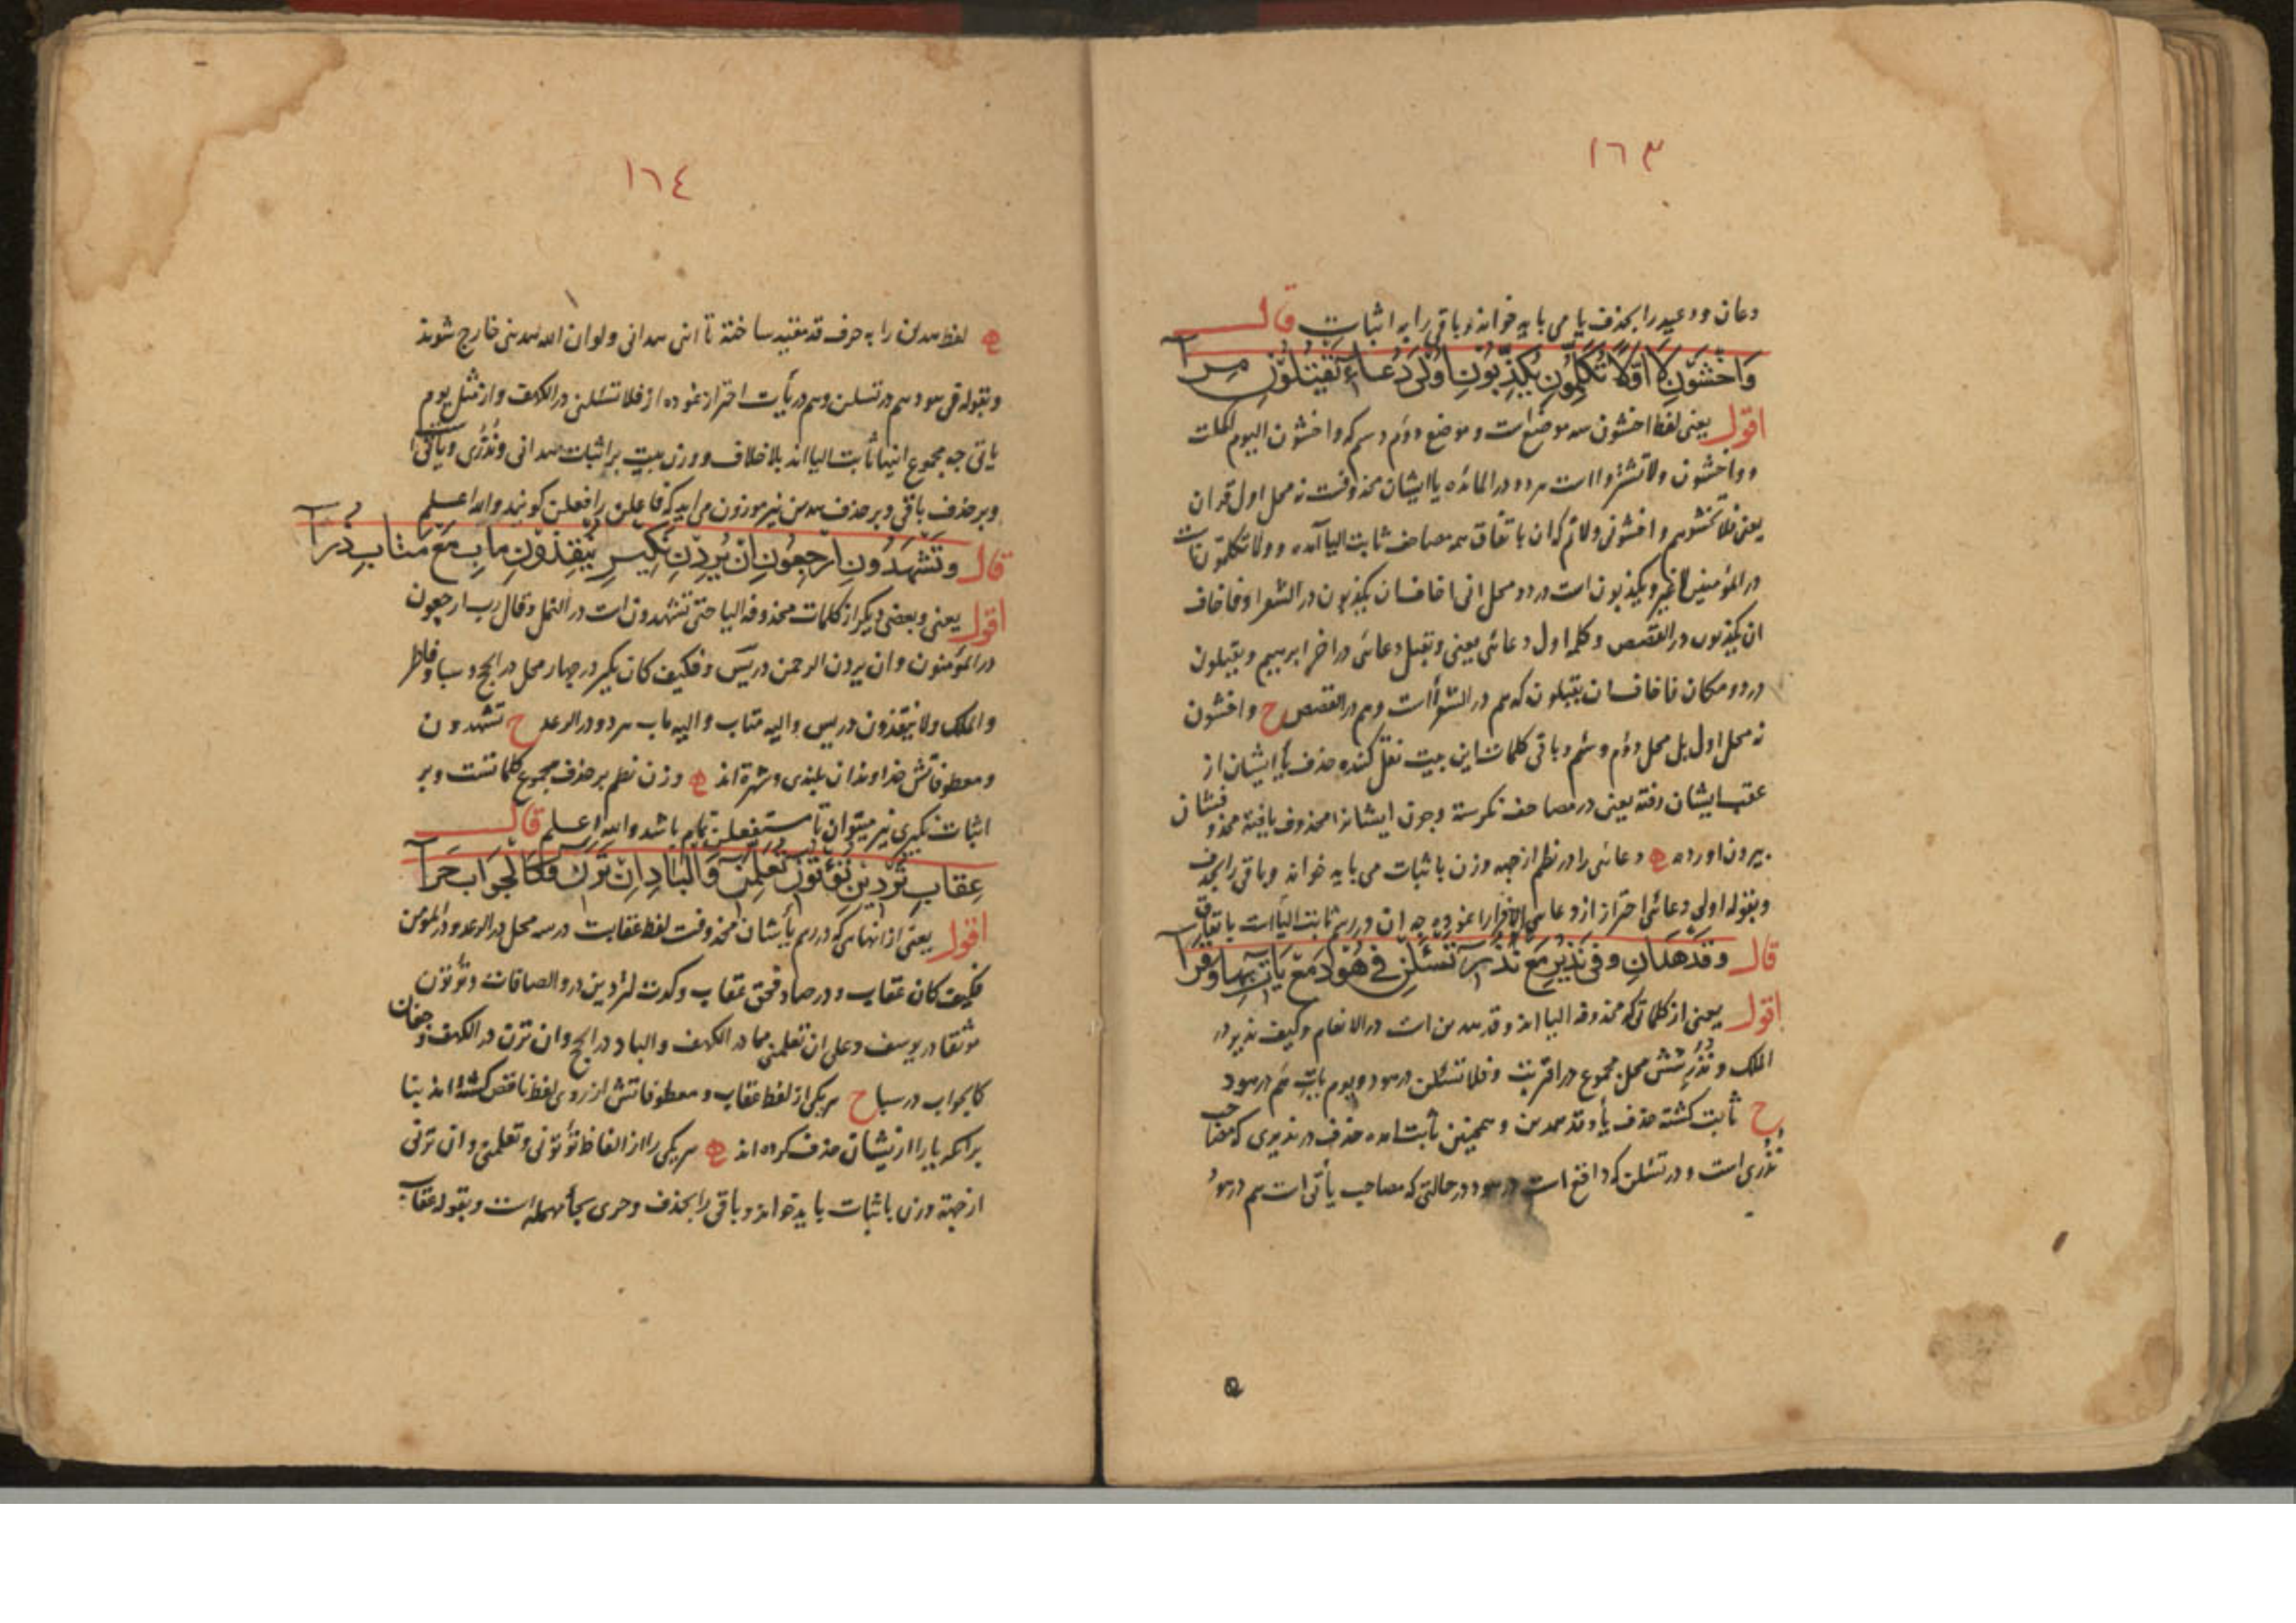 ١٦٣
دعان و وعید را بحذف یا می باید خواند و باقی را به اثبات قال
وَاخْشَوْنِ لَا اَوَّلًا تُكَلِّمُونِ يُكَذِّبُونِ اُولَى دُعَاءِ يَقْتُلُونِ مِرآ
اقول یعنی لفظ اخشون سه موضع است و موضع دوم و سیم که واخشون الیوم اکملت
و واخشون ولا تشتروا است هر دو در المائده یا ایشان محذوفست نه محل اول قران
یعنی فلا تخشوهم واخشونی ولاتم که ان باتفاق همه مصاحف ثابت الیا آمده و ولا تکلمون است
در المؤمنین لا غیر و یکذبون است در دو محل انی اخاف ان یکذبون در الشعرا و فاخاف
ان یکذبون در القصص و کلمه اول دعائی یعنی وتقبل دعائی در اخر ابرهیم و یقتلون
در دو مکان فاخاف ان یقتلون که هم در الشعرا است و هم در القصص ح واخشون
نه محل اول بل محل دوم و سیم و باقی کلمات این بیت نقل کننده حذف یا ایشان از
عقب ایشان رفته یعنی در مصاحف نکرسته و چون ایشانرا محذوف یافته محذوفشان
بیرون آورده ه دعائی را در نظم از جهه وزن باثبات می باید خواند و باقی را بحذف
و بقوله اولی دعائی احتراز از دعائی الا فرارا نموده چه ان در رسم ثابت الیا است باتفاق
قال وَقَدْ هَدَانِ وَفِي نَذِيرِ مَعْ نُذُرِ تَسْئَلْنِ فِي هُودَ مَعْ يَأْتِ بِهَا وَقَرآ
اقول یعنی از کلماتی که محذوفه الیا اند وقد هدىن است در الانعام و کیف نذیر در
الملک و نذر شش محل مجموع در اقتربت و فلا تسئلن در هود و یوم یات هم در هود
ح ثابت کشته حذف یا وقد هدىن و همچنین ثابت امده حذف در نذیری که مصاحب
نذری است و در تسئلن که واقع است در هود در حالتی که مصاحب یأتی است هم در هود
١٦٤
ه لفظ هدىن را به حرف قد مقید ساخته تا اننی هدانی و لو ان الله هدینی خارج شوند
و بقوله فی هود هم در تسلن و هم در یأت احتراز نموده از فلا تسئلنی در الکهف و از مثل یوم
یاتی چه مجموع اینها ثابت الیا اند بلا خلاف و وزن بیت بر اثبات هدانی و نذری و یأتی
و بر حذف باقی و بر حذف هدین نیز موزون می اید که فاعلن را فعلن کویند والله اعلم
قال وَتَشْهَدُونِ ارْجِعُونِ اِنْ يُرِدْنِ نَكِيرِ يُنْقِذُونِ مَآبِ مَعْ مَتَابِ ذُرآ
اقول یعنی و بعضی دیکر از کلمات محذوفه الیا حتی تشهدون است در النمل و قال رب ارجعون
در المؤمنون و ان یردن الرحمن در یس و فکیف کان نکیر در چهار محل در الحج و سبا و فاطر
و الملک و لا ینقذون در یس و الیه متاب و الیه ماب هر دو در الرعد ح تشهدون
و معطوفاتش خداوندان بلندی و شهرة اند ه وزن نظم بر حذف مجموع کلماتست و بر
اثبات نکیری نیز میتوان تا مستفعلن تمام باشد والله اعلم قال
عِقَابِ تُرْدِينِ تُؤْتُونِ تُعَلِّمَنِ وَالْبَادِ اِنْ تَرَنِ وَكَالْجَوَابِ حَرآ
اقول یعنی از انها که در رسم یأیشان محذوفست لفظ عقابست در سه محل در الرعد و در المؤمن
فکیف کان عقاب و در صاد فحق عقاب و کدت لتردین در والصافات و تؤتون
موثقا در یوسف و علی ان تعلمنی مما در الکهف و الباد در الحج و ان ترن در الکهف و جفان
کالجواب در سبا ح هر یکی از لفظ عقاب و معطوفاتش از روی لفظ ناقص کشته اند بنا
بر آنکه یا را از ایشان حذف کرده اند ه هر یکی را از الفاظ تؤتونی و تعلمنی و ان ترنی
از جهة وزن باثبات باید خواند و باقی را بحذف و حری بحأ مهمله است و بقوله عقاب